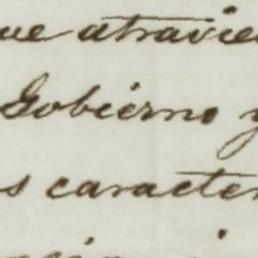 ue atravie
Gobierno y
s caracter